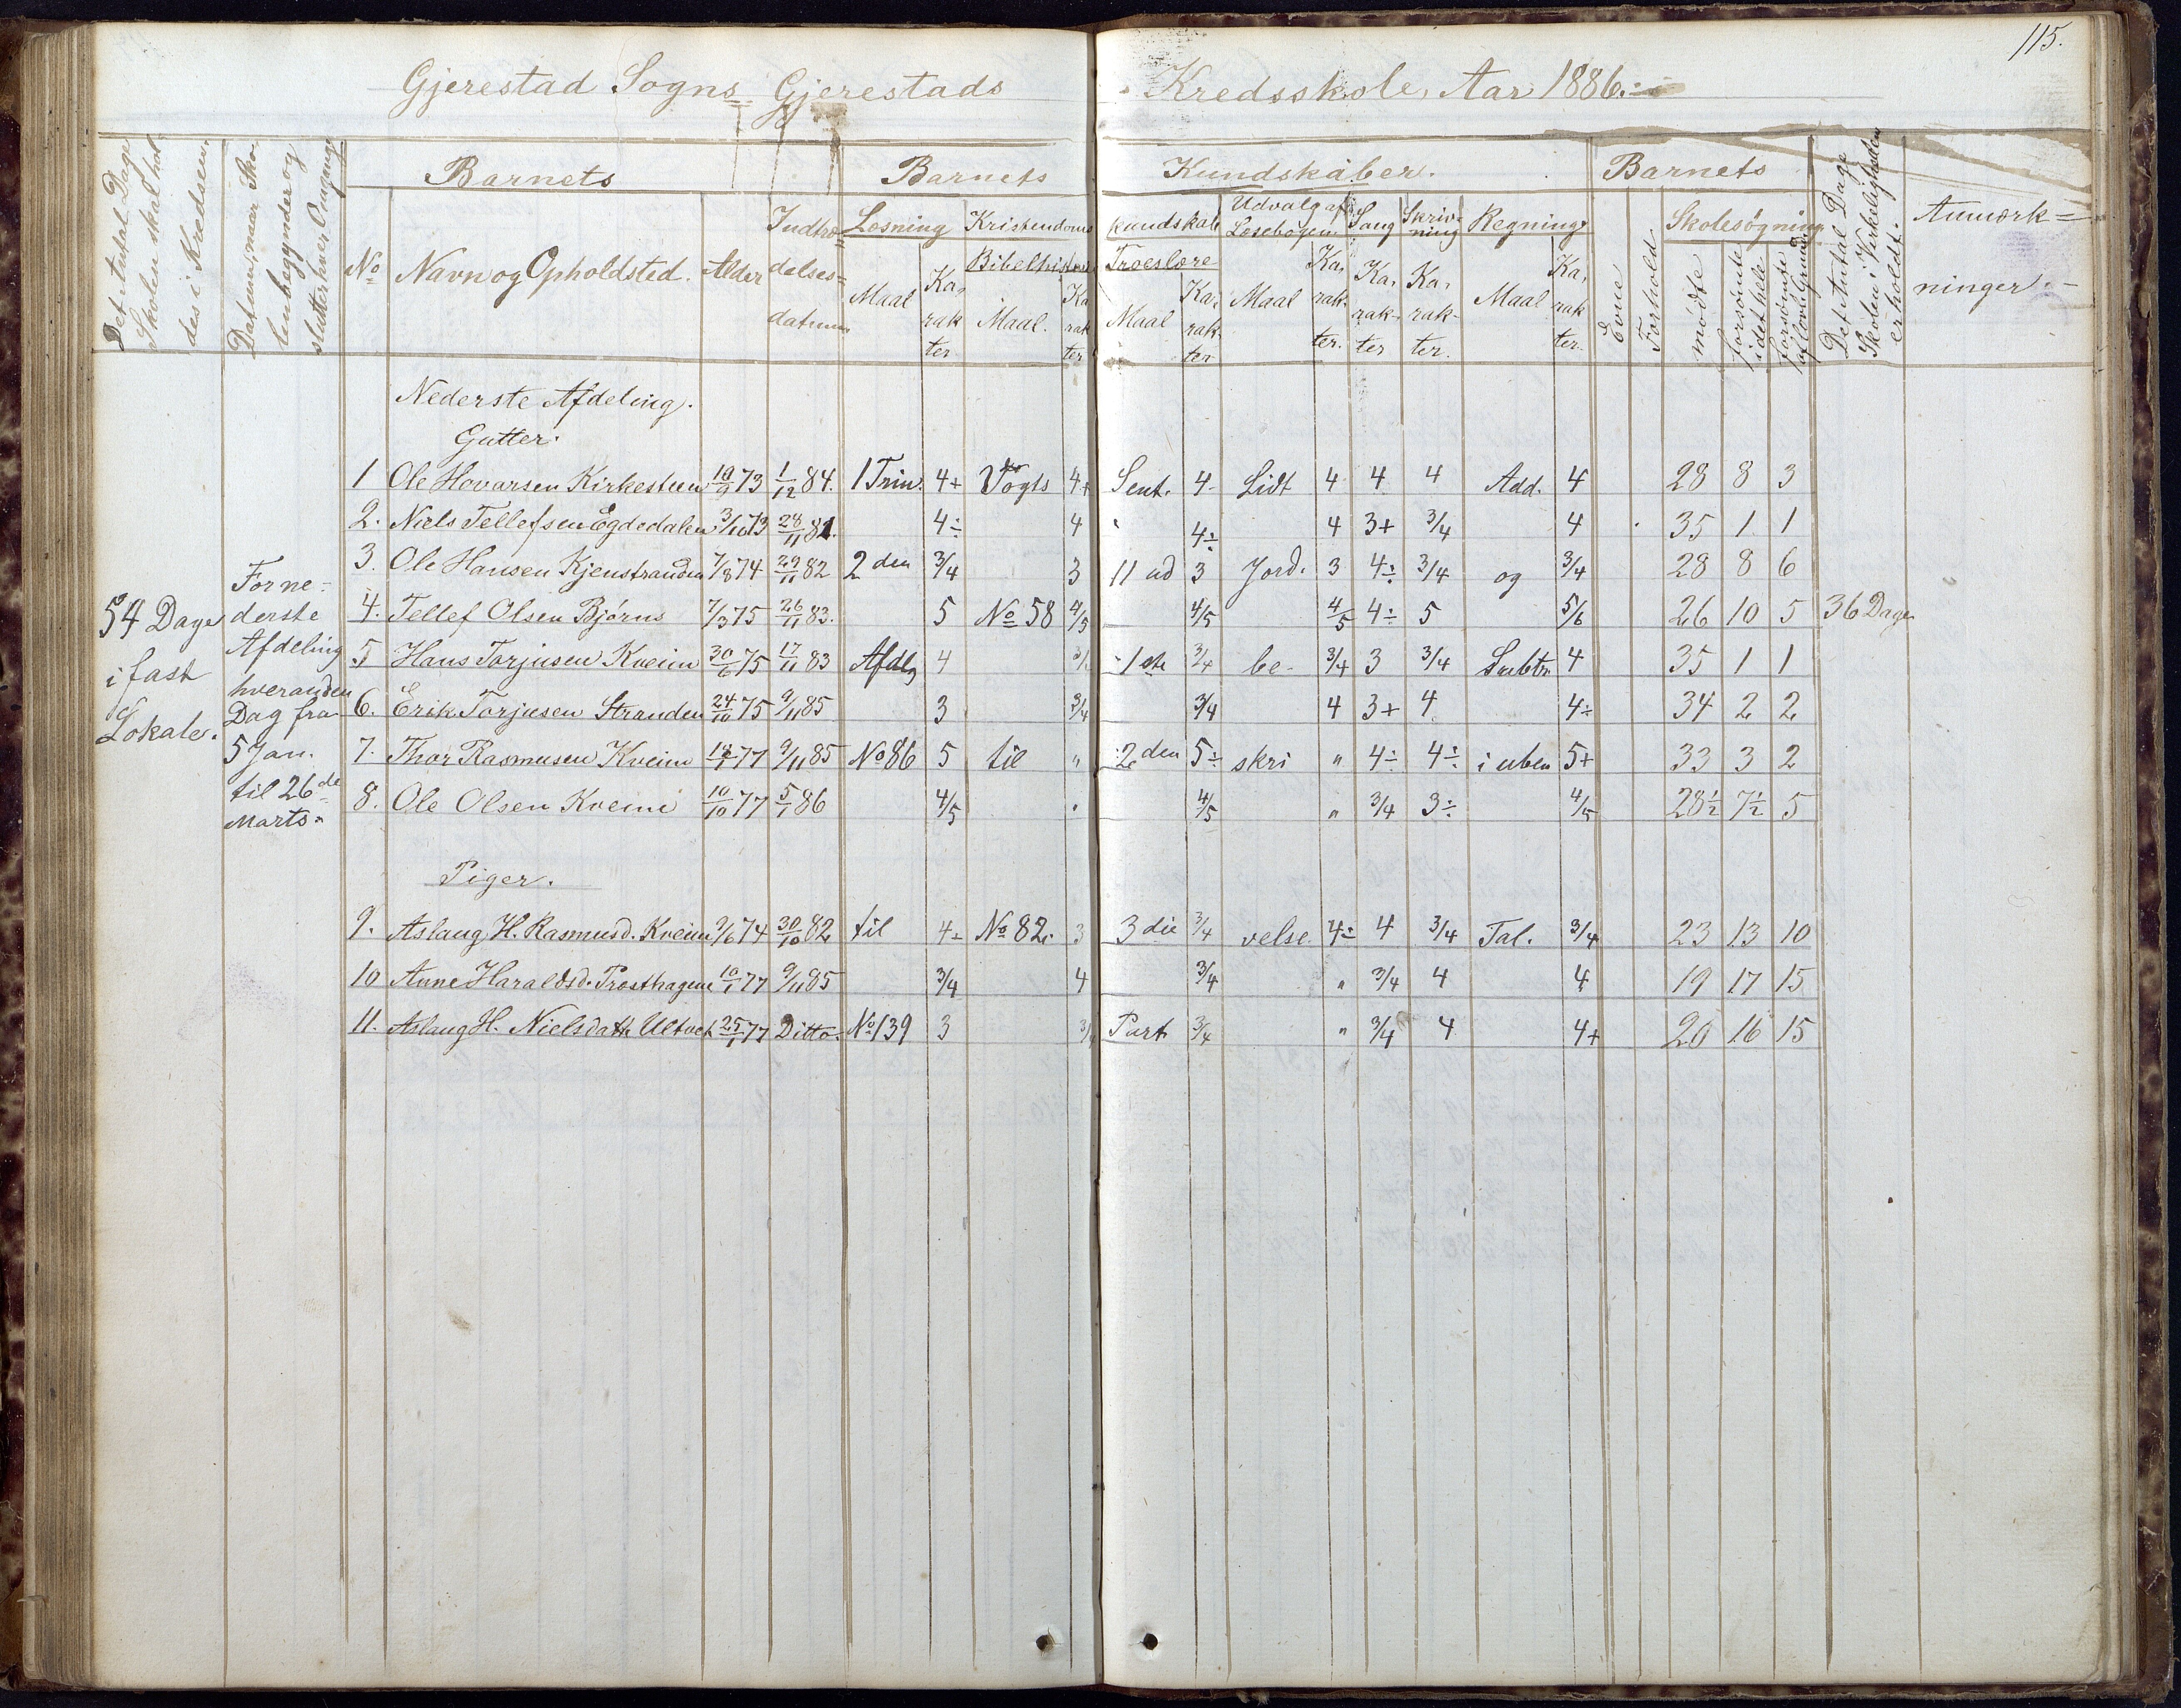 115.
Gjerestad Sogns Gjerestads Kredsskole, Aar 1886.
Det Antal Dage Skolen skal holdes i Kredsen.
Datum, naar Skolen begynder og slutter hver Omgang
Barnets Barnets Kundskaber. Barnets
Det Antal Dage Skolen i Virkeligheden er holdt.
Anmærkninger.
No Navn og Opholdsted. Alder Indtrædelsesdatum
Læsning Kristendomskundskab Udvalg af Læsebogen Sang Skrivning Regning
Bibelhistorie Troeslære
Maal Karakter Maal. Karakter Maal Karakter Maal Karakter. Karakter Karakter. Maal Karakter.
Evne Forhold Skolesøgning
mødte forsømte i det hele forsømte af lovl. Grund
Nederste Afdeling.
Gutter.
1 Ole Hovarsen Kirkesteen 10/9 73 1/12 84. 1 Trin. 4+ Vogts 4+ Sent. 4- Lidt 4 4 4 Add. 4 28 8 3
2. Niels Tellefsen Egdedalen 3/10 73 28/11 81. 4÷ 4 " 4÷ 4 3+ 3/4 4 35 1 1
3. Ole Hansen Kjenstranden 7/8 74 29/11 82 2den 3/4 3 11 ud 3 Jord. 3 4÷ 3/4 og 3/4 28 8 6
4. Tellef Olsen Bjørns 7/3 75 26/11 83. 5 No 58 4/5 4/5 4/5 4÷ 5 5/6 26 10 5 36 Dage
5 Hans Torjusen Kveim 30/6 75 17/11 83 Afdlg 4 1ste 3/4 be- 3/4 3 3/4 Subtr. 4 35 1 1
6. Erik Torjusen Stranden 24/10 75 9/11 85 3 3/4 3/4 4 3+ 4 4÷ 34 2 2
7. Thor Rasmusen Kveim 77 9/11 85 No 86 5 til " 2den 5÷ skri " 4÷ 4÷ i uben 5+ 33 3 2
8. Ole Olsen Kveim 10/10 77 5/1 86 4/5 " 4/5 " 3/4 3÷ 4/5 28½ 7½ 5
54 Dage i fast Lokale.
For nederste Afdeling hveranden Dag fra 5 Jan. til 26de Marts.
Piger.
9. Aslaug H. Rasmusd. Kveim 9/6 74 30/10 82 til 4÷ No 82. 3 3die 3/4 velse 4÷ 4 3/4 Tal. 3/4 23 13 10
10 Anne Haraldsd. Prosthagen 10/1 77 9/11 85 3/4 4 3/4 " 3/4 4 4 19 17 15
11. Aslaug H. Nielsdatr. Ultvet 25/1 77 Ditto. No 139 3 3/4 Part 3/4 " 3/4 4 4+ 20 16 15